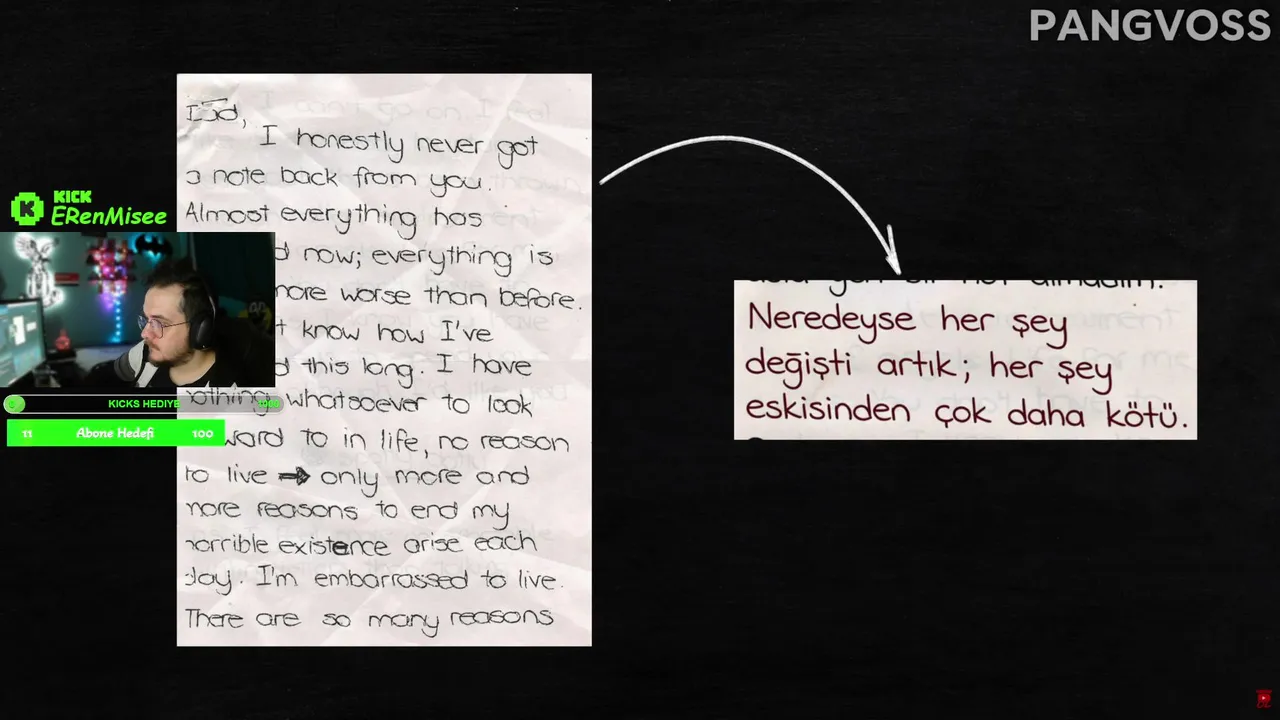 PANGVOSS
I honestly never got
a note back from you.
Almost everything has
now; everything is
more worse than before.
know how I've
this long. I have
nothing whatsoever to look
ward to in life, no reason
to live → only more and
more reasons to end my
horrible existence arise each
day. I'm embarrassed to live.
There are so many reasons
KICK
ERenMisee
KICKS HEDIYE
11 Abone Hedefi 100
Neredeyse her şey
değişti artık; her şey
eskisinden çok daha kötü.